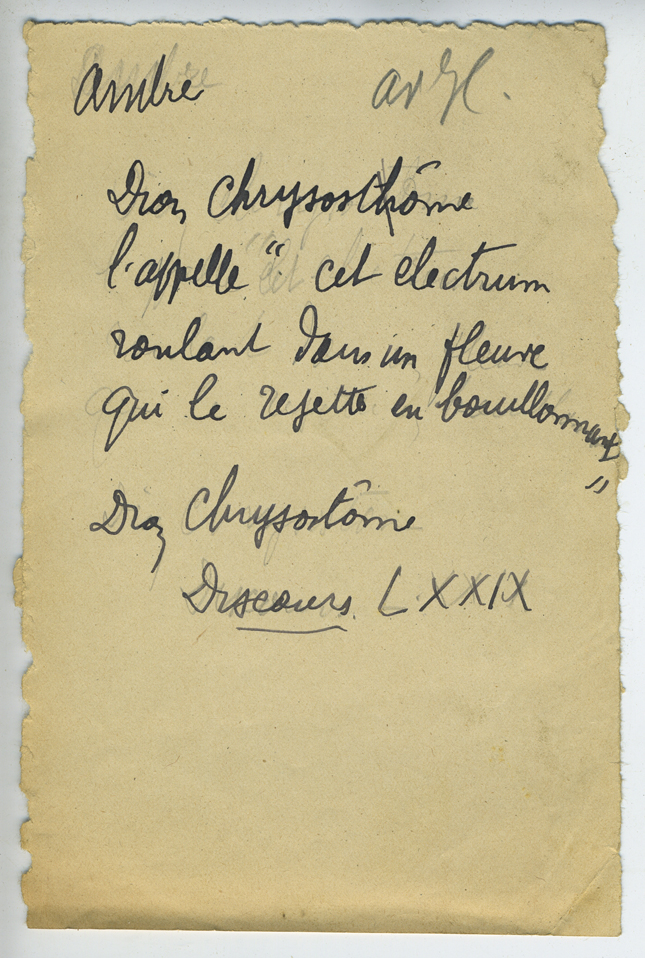 ambre
Dion Chrysosthôme
l'appelle " cet electrum
roulant dans un fleuve
qui le rejette en bouillonnant
"
Dion Chrysostôme
Discours LXXIX